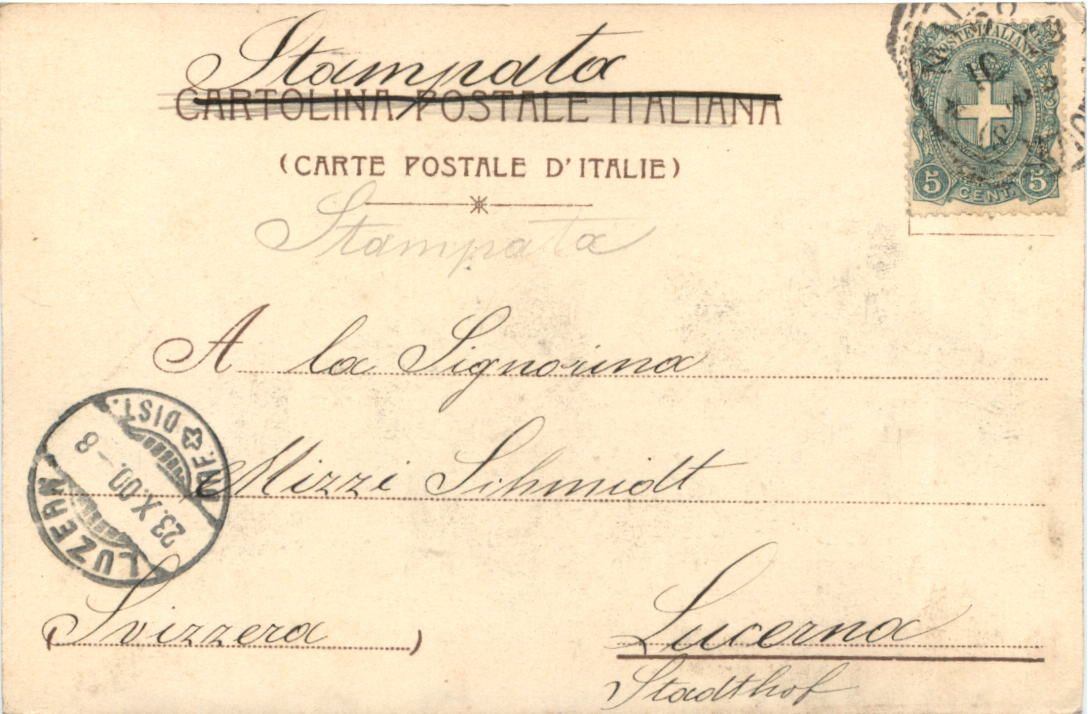 Stampata
CARTOLINA POSTALE ITALIANA
(CARTE POSTALE D'ITALIE)
Stampata
A la Signorina
Mizzi Schmidt
(Svizzera)
Lucerna
Stadthof
POSTE ITALIANE
5 CENT 5
LUZERN
NE. DIST.
23.X.00.-8